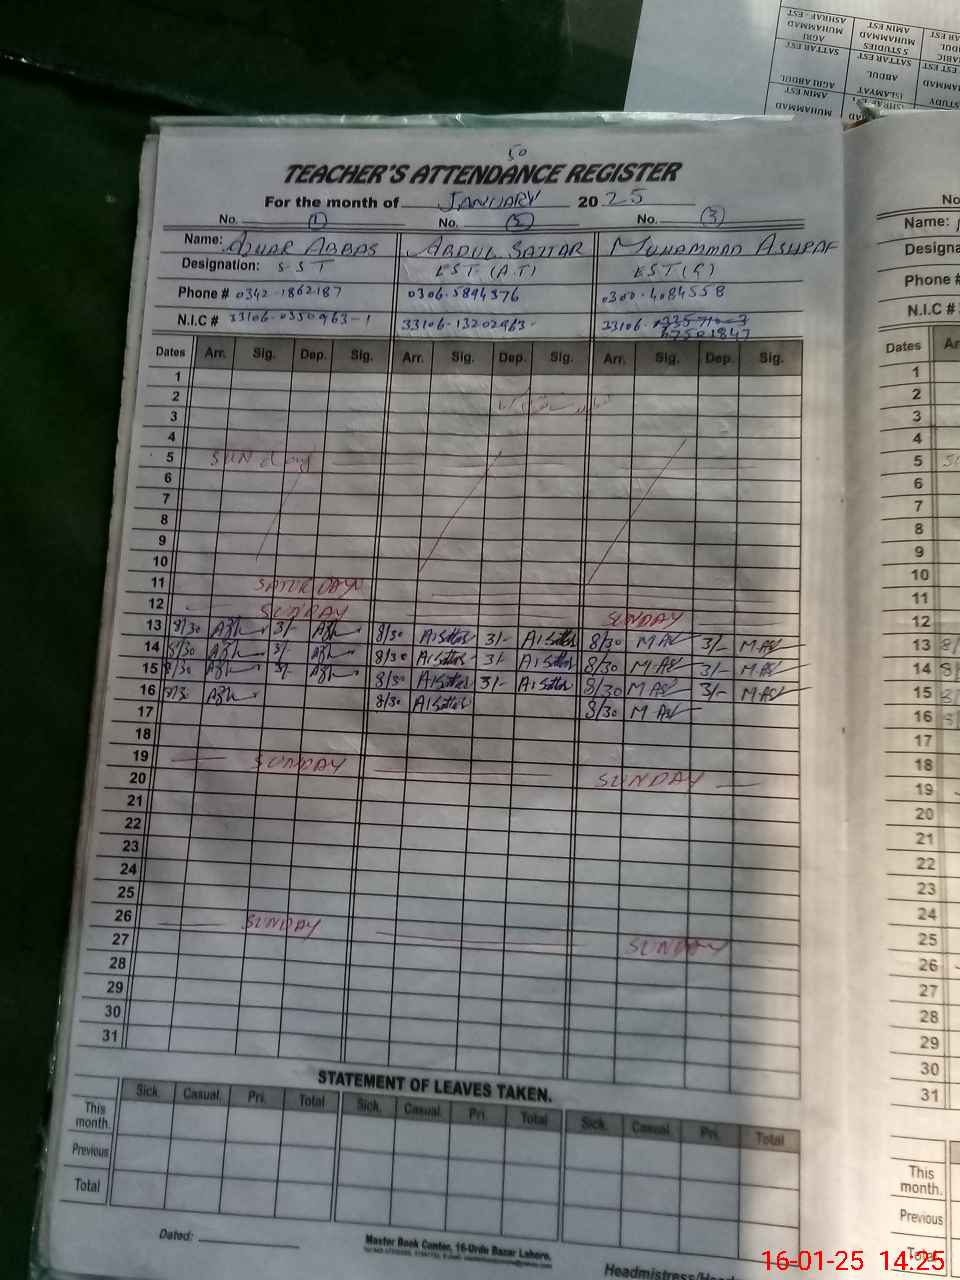 50
TEACHER'S ATTENDANCE REGISTER
For the month of JANUARY 2025
No. (1) No. (2) No. (3)
Name: AZHAR ABBAS ABDUL SATTAR MUHAMMAD ASHRAF
Designation: SST EST (A.T) EST (G)
Phone # 0342-1862187 0306.5894376 0300-4084558
N.I.C # 33106-0350963-1 33106-13202963- 33106-
47501847
Dates Arr. Sig. Dep. Sig. Arr. Sig. Dep. Sig. Arr. Sig. Dep. Sig.
1
2
3
4
5 SUNday
6
7
8
9
10
11 SATURDAY
12 SUNDAY SUNDAY
13 8/30 3/- 8/30 A1Sattar 3/- A1Sattar 8/30 M AS 3/- M AS
14 8/30 3/- 8/30 A1Sattar 3/- A1Sattar 8/30 M AS 3/- M AS
15 8/30 3/- 8/30 A1Sattar 3/- A1Sattar 8/30 M AS 3/- M AS
16 8/30 8/30 A1Sattar 8/30 M AS
17
18
19 SUNDAY SUNDAY
20
21
22
23
24
25
26 SUNDAY SUNDAY
27
28
29
30
31
STATEMENT OF LEAVES TAKEN.
Sick. Casual. Pri. Total Sick. Casual. Pri. Total Sick. Casual. Pri. Total
This month.
Previous
Total
Dated:
Master Book Center, 16-Urdu Bazar Lahore.
Headmistress/
No
Name:
Designa
Phone #
N.I.C #
Dates Ar
1
2
3
4
5
6
7
8
9
10
11
12
13
14
15
16
17
18
19
20
21
22
23
24
25
26
27
28
29
30
31
This
month.
Previous
Total
MUHAMMAD AMIN EST
AGRI ABDUL SATTAR EST
AGRI MUHAMMAD ASHRAF - EST
ISLAMYAT ABDUL SATTAR EST
S STUDIES MUHAMMAD AMIN EST
16-01-25 14:25